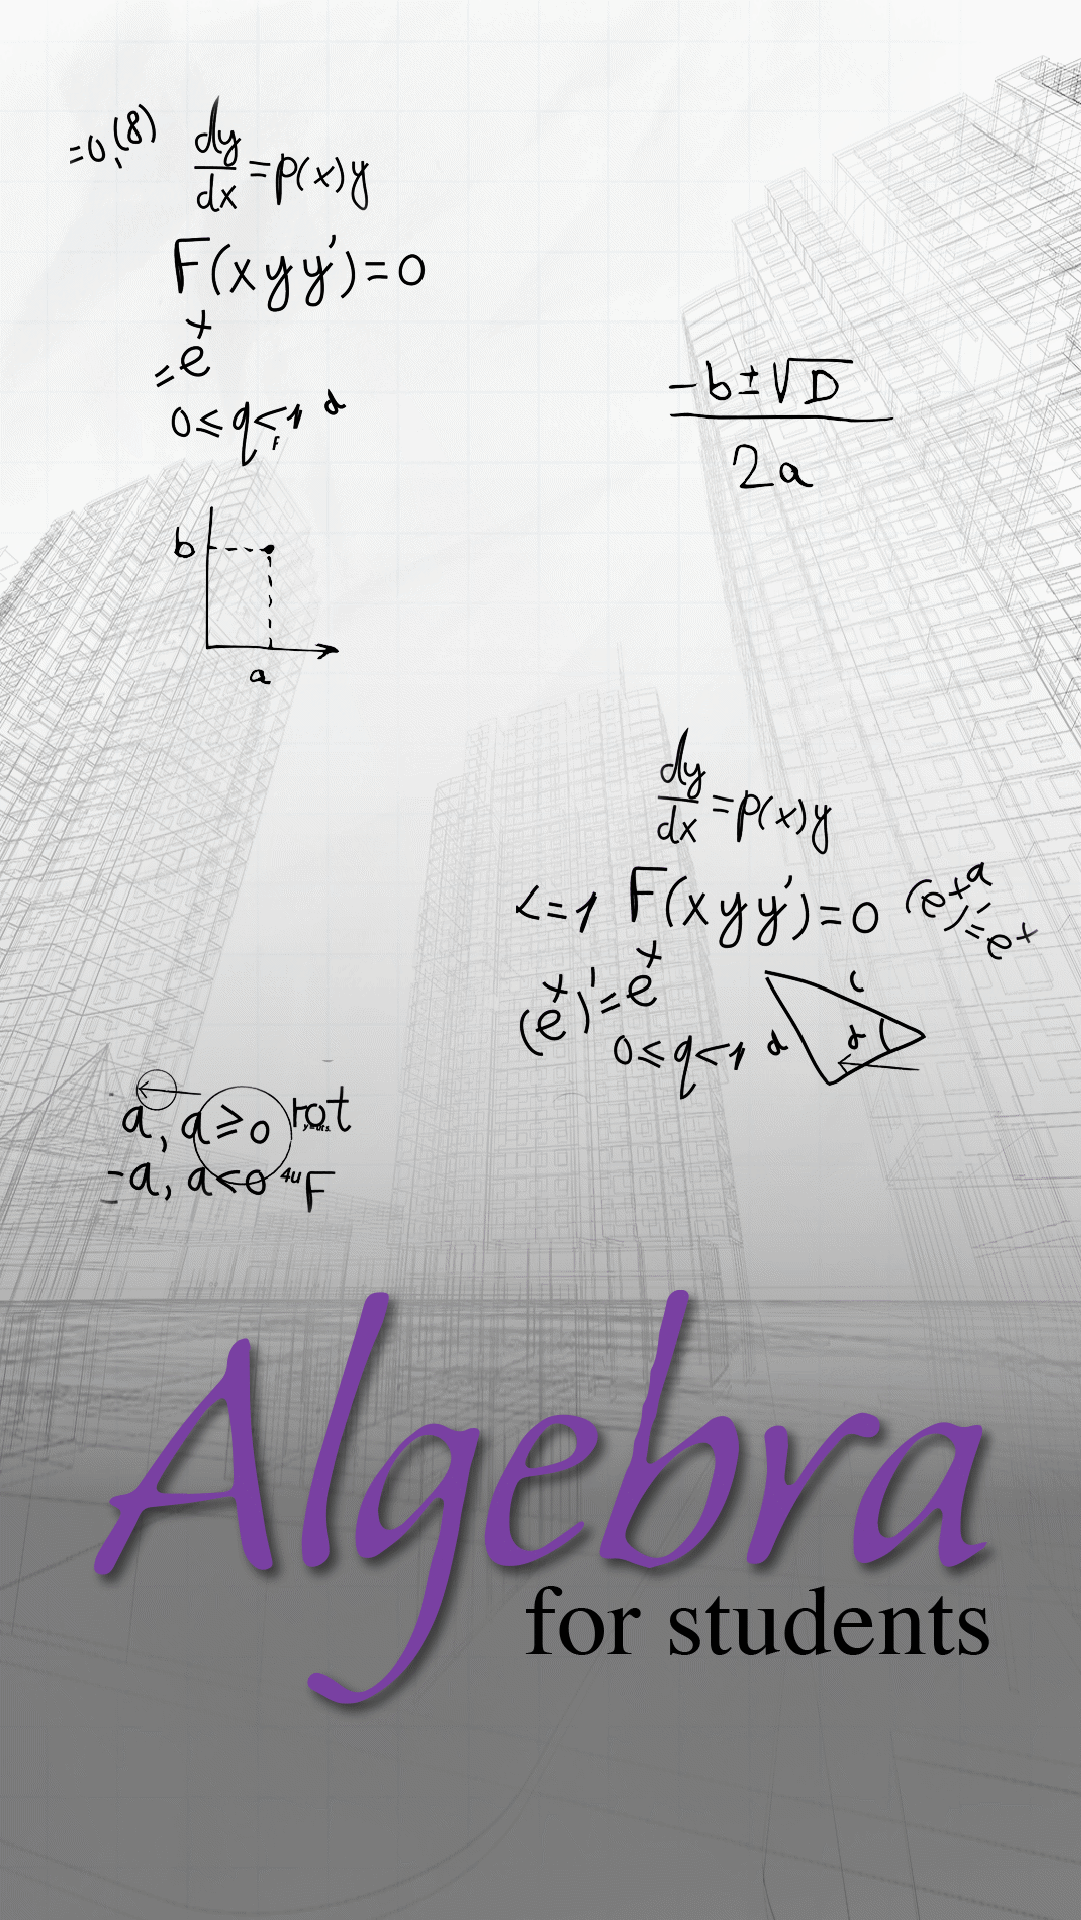 =0,(8)
dy/dx = p(x)y
F(x y y')=0
=e^x
0≤q<1 d
F
b
a
-b±√D
2a
dy/dx = p(x)y
<=1 F(x y y')=0
(e^x)'=e^x
0≤q<1 d
a, a≥0 rot
-a, a<0 4u F
Algebra
for students